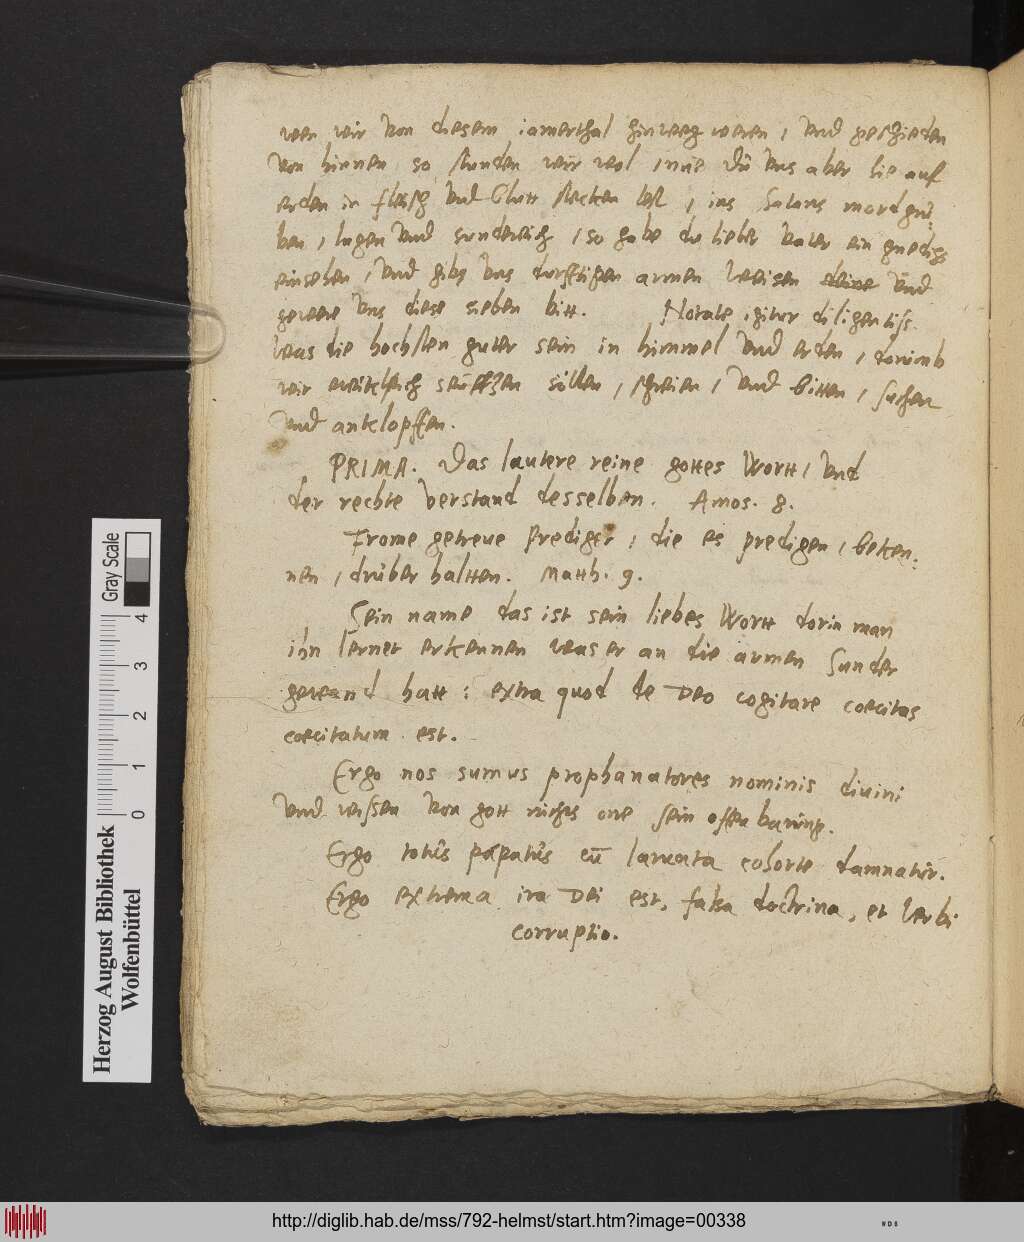 wen wir von diesem iamerthal hinweg weren, vnd geschieden
von hinnen so stunden wir wol, wie du vns aber hie auf
erden in fleisch vnd Blutt stecken lest, ins Satans mordgru:
ben, lugen vnd sundereich, so habe du lieber vater ein gnedigs
einsehen, vnd gibs vns durfftigen armen weisen vnd
gewere vns diese sieben bitt. Notate igitur diligentiss.
was die hochsten guter sein in himmel vnd erden, dorumb
wir seufftzen sollen, schreien, vnd bitten, suchen
vnd anklopffen.
PRIMA. Das lautere reine gottes Wortt, vnd
der rechte verstand desselben. Amos. 8.
Frome getreue Prediger, die es predigen, beken:
nen, druber haltten. Matth. 9.
Sein name das ist sein liebes Wortt dorin man
ihn lernet erkennen was er an die armen Sunder
gewand hatt: extra quod de DEO cogitare coecitas
coecitatum est.
Ergo nos sumus prophanatores nominis diuini
vnd wissen von gott nichts one sein offenbarung.
Ergo totus papatus cū laruata cohorte damnatur.
Ergo extrema ira DEI est, falsa doctrina, et verbi
corruptio.
Herzog August Bibliothek
Wolfenbüttel
Gray Scale
0 1 2 3 4
http://diglib.hab.de/mss/792-helmst/start.htm?image=00338